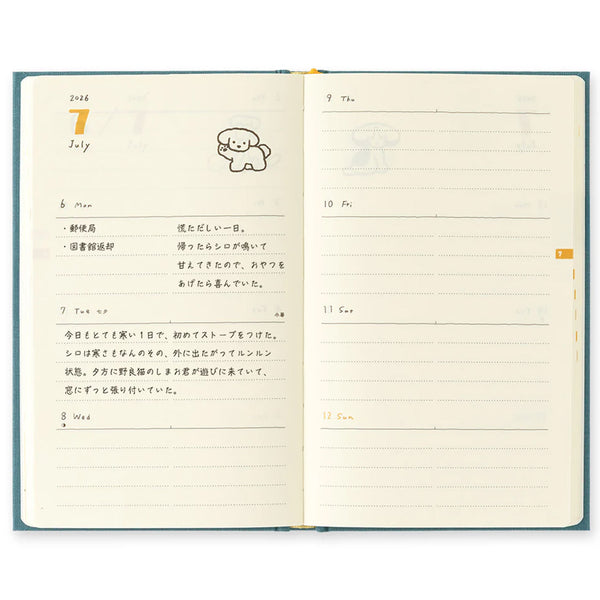 2026
7
July
6 Mon
・郵便局 慌ただしい一日。
・図書館返却 帰ったらシロが鳴いて
甘えてきたので、おやつを
あげたら喜んでいた。
7 Tue 七夕
小暑
今日もとても寒い1日で、初めてストーブをつけた。
シロは寒さもなんのその、外に出たがってルンルン
状態。夕方に野良猫のしまお君が遊びに来ていて、
窓にずっと張り付いていた。
8 Wed
9 Thu
10 Fri
7
11 Sat
12 Sun